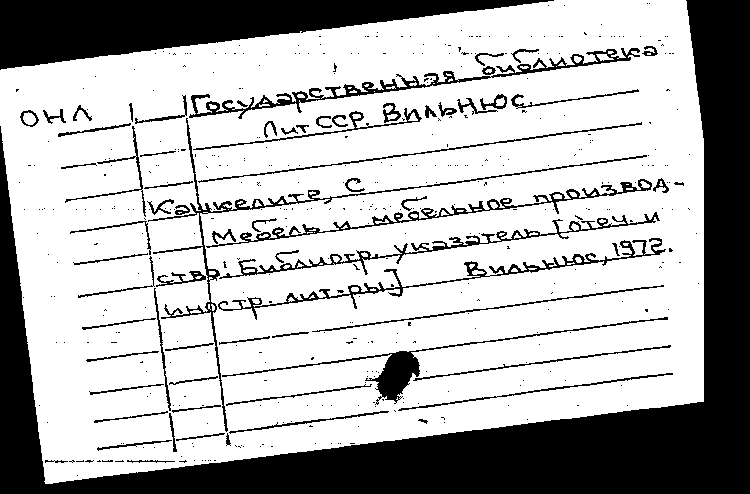 ОНЛ
Государственная библиотека
Лит ССР. Вильнюс.
Кашкелите, С
Мебель и мебельное производ-
ство: Библиогр. указатель [отеч. и
иностр. лит-ры.] Вильнюс, 1972.